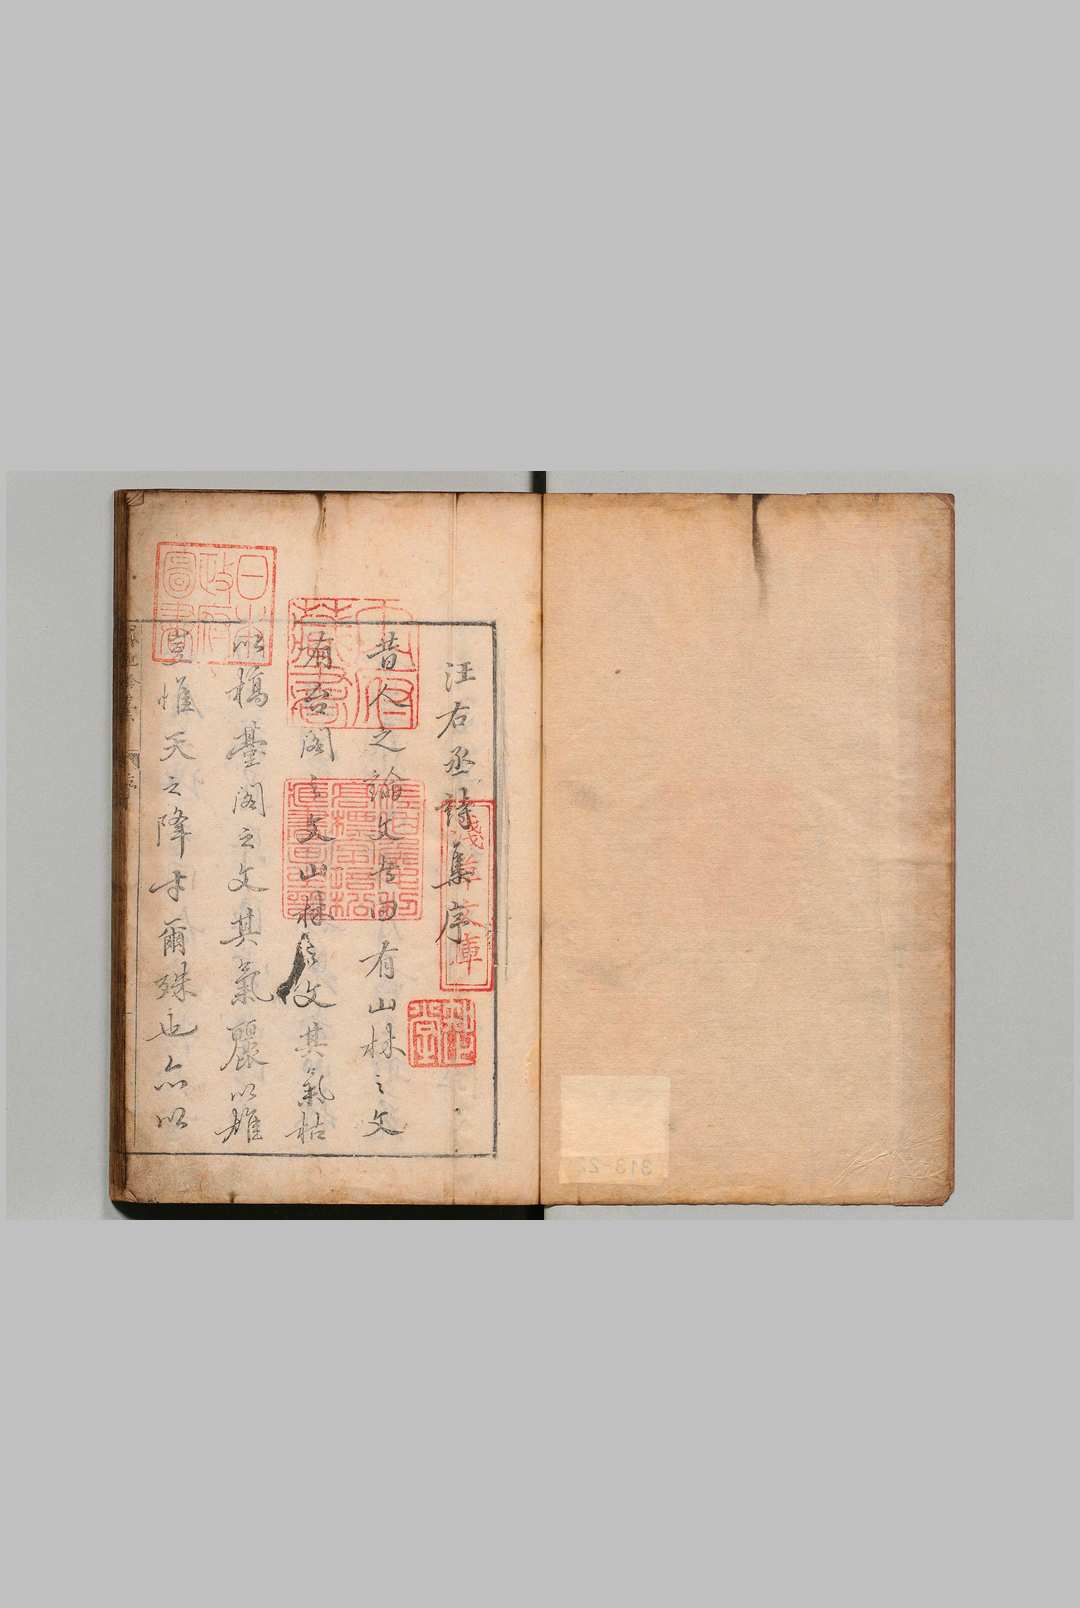 汪右丞詩集序
昔人之論文者曰有山林之文
有臺閣之文山林之文其氣枯
以槁臺閣之文其氣麗以雄
豈惟天之降才爾殊也亦以
淺草文庫
日本政府圖書